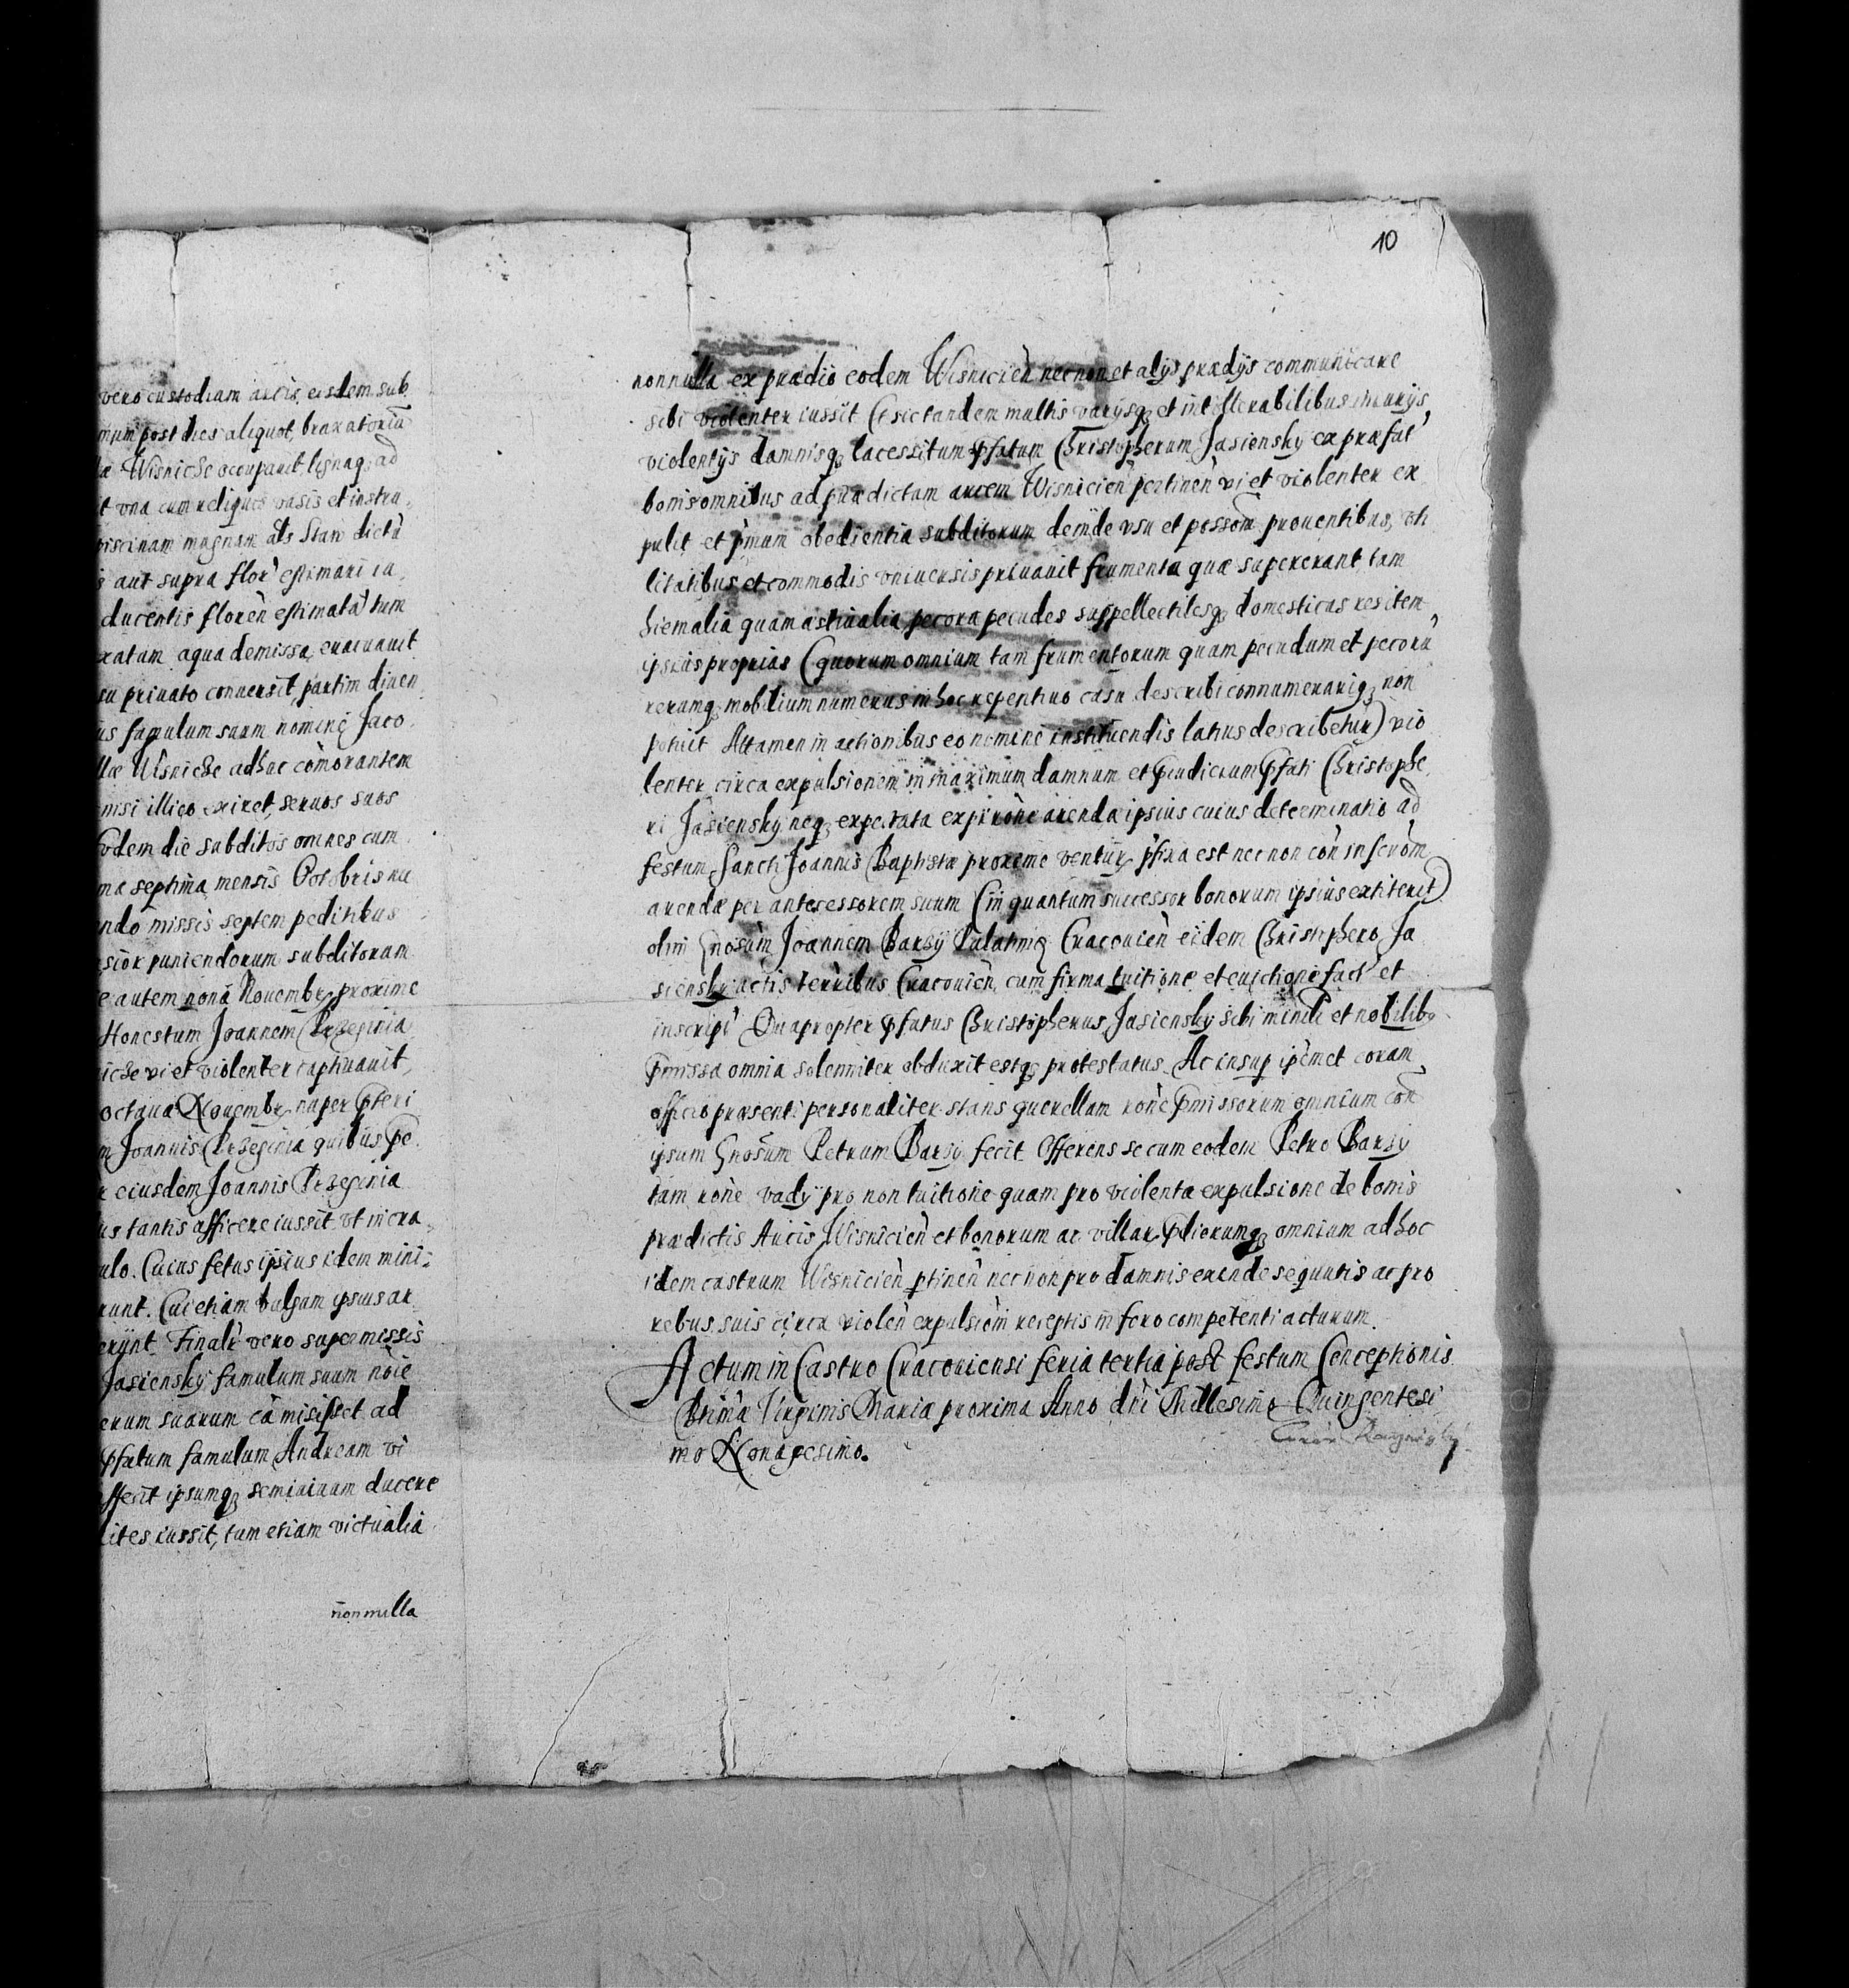 vero custodiam arcis, eisdem sub
mum post dies aliquot, braxatoriũ
Wisnicze occupauit lignaq; ad
t vna cum reliquis vasis et instru,
piscinam magnam als Staw dictã
aut supra flor' estimari
ducentis florèn estimatã tum
xatam aqua demissa, euacuauit
su priuato conuersit, partim diuen
us famulum suum nomine Jaco
llæ Wisnicze adhuc còmorantem
nisi illico exiret, seruos suos
odem die subditos omnes cum
ma septima mensis Octobris
ndo missis septem peditibus
sior puniendorum subditorum
e autem nona Nouembr proxime
Honestum Joannem Przeginia
icze vi et violenter captiuauit,
octaua Nouembr nuper pteri
m Joannis Przeginia quibus pe
r eiusdem Joannis Przeginia
us tantis afficere iussit vt in cra,
ulo. Cuius fetus ipsius idem mini:
runt. Cui etiam balgam ipsius ar
erunt Finalr vero supermissis
Jasiensky famulum suum noie
erum suarum cã misisset ad
pfatum famulum Andream vi
ffecit ipsumq; semiuiuum ducere
lites iussit, tum etiam victualia
nonnulla
10
nonnulla ex prædio eodem Wisnicièn necnon et alÿs prædÿs communicare
sibi violenter iussit Et sic tandem multis varÿsq; et intollerabilibus iniurÿs
violentÿs damnisq; lacessitum pfatum Christopherum Jasiensky ex præfat'
bonis omnibus ad prædictam arcem Wisnicièn pertinèn vi et violenter ex
pulit et pmum obedientia subditorum deinde vsu et possom prouentibus, vti
litatibus et commodis vniuersis priuauit frumenta quæ supererant, tam
hiemalia quam æstiualia, pecora pecudes suppellectilesq; domesticas res item
ipsius proprias (quorum omnium tam frumentorum quam pecudum et pecorũ
rerumq; mobilium numerus in hoc repentino casu describi connumerariq; non
potuit Attamen in actionibus eo nomine instituendis latius describetur) vio
lenter circa expulsionem in maximum damnum et piudicium pfati Christophe
ri Jasiensky neq; expectata expirròne arendæ ipsius cuius determinatio ad
festum Sancti Joannis Baptistæ proxime ventur pfixa est nec non còn inscròm
arendæ per antecessorem suum (in quantum successor bonorum ipsius extiterit)
olim Gnosum Joannem Barzÿ Palatinũ Cracouièn eidem Christophero Ja
siensky actis terribus Cracouièn, cum firma tuitione et euictione fact' et
inscript' Quapropter pfatus Christopherus Jasiensky sibi minlr et nobilibs
pmissa omnia solenniter obduxit estq; protestatus Ac insup ipemet coram
officio præsenti personaliter stans querellam ròne pmissorum omnium còn
ipsum Gnosum Petrum Barzÿ fecit Offerens se cum eodem Petro Barzÿ
tam ròne vadÿ pro non tuitione quam pro violenta expulsione de bonis
prædictis Arcis Wisnicièn et bonorum ac villar pdiorumq; omnium ad hoc
idem castrum Wisnicièn ptinèn necnon pro damnis exinde sequutis ac pro
rebus suis circa violèn expulsiòm receptis in foro competenti acturum.
Actum in Castro Cracouiensi feria tertia post festum Conceptionis
Btimæ Virginis Mariæ proxima Anno dni Millesimo Quingentesi
mo Nonagesimo.